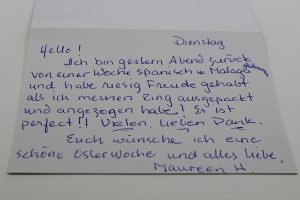 Dienstag
Hello!
Ich bin gestern Abend zurück
von einer Woche spanisch in Malaga
und habe riesig Freude gehabt
als ich meinen Ring ausgepackt
und angezogen habe! Er ist
perfect!! Vielen, lieben Dank.
Euch wünsche ich eine
schöne Osterwoche und alles liebe,
Maureen H.